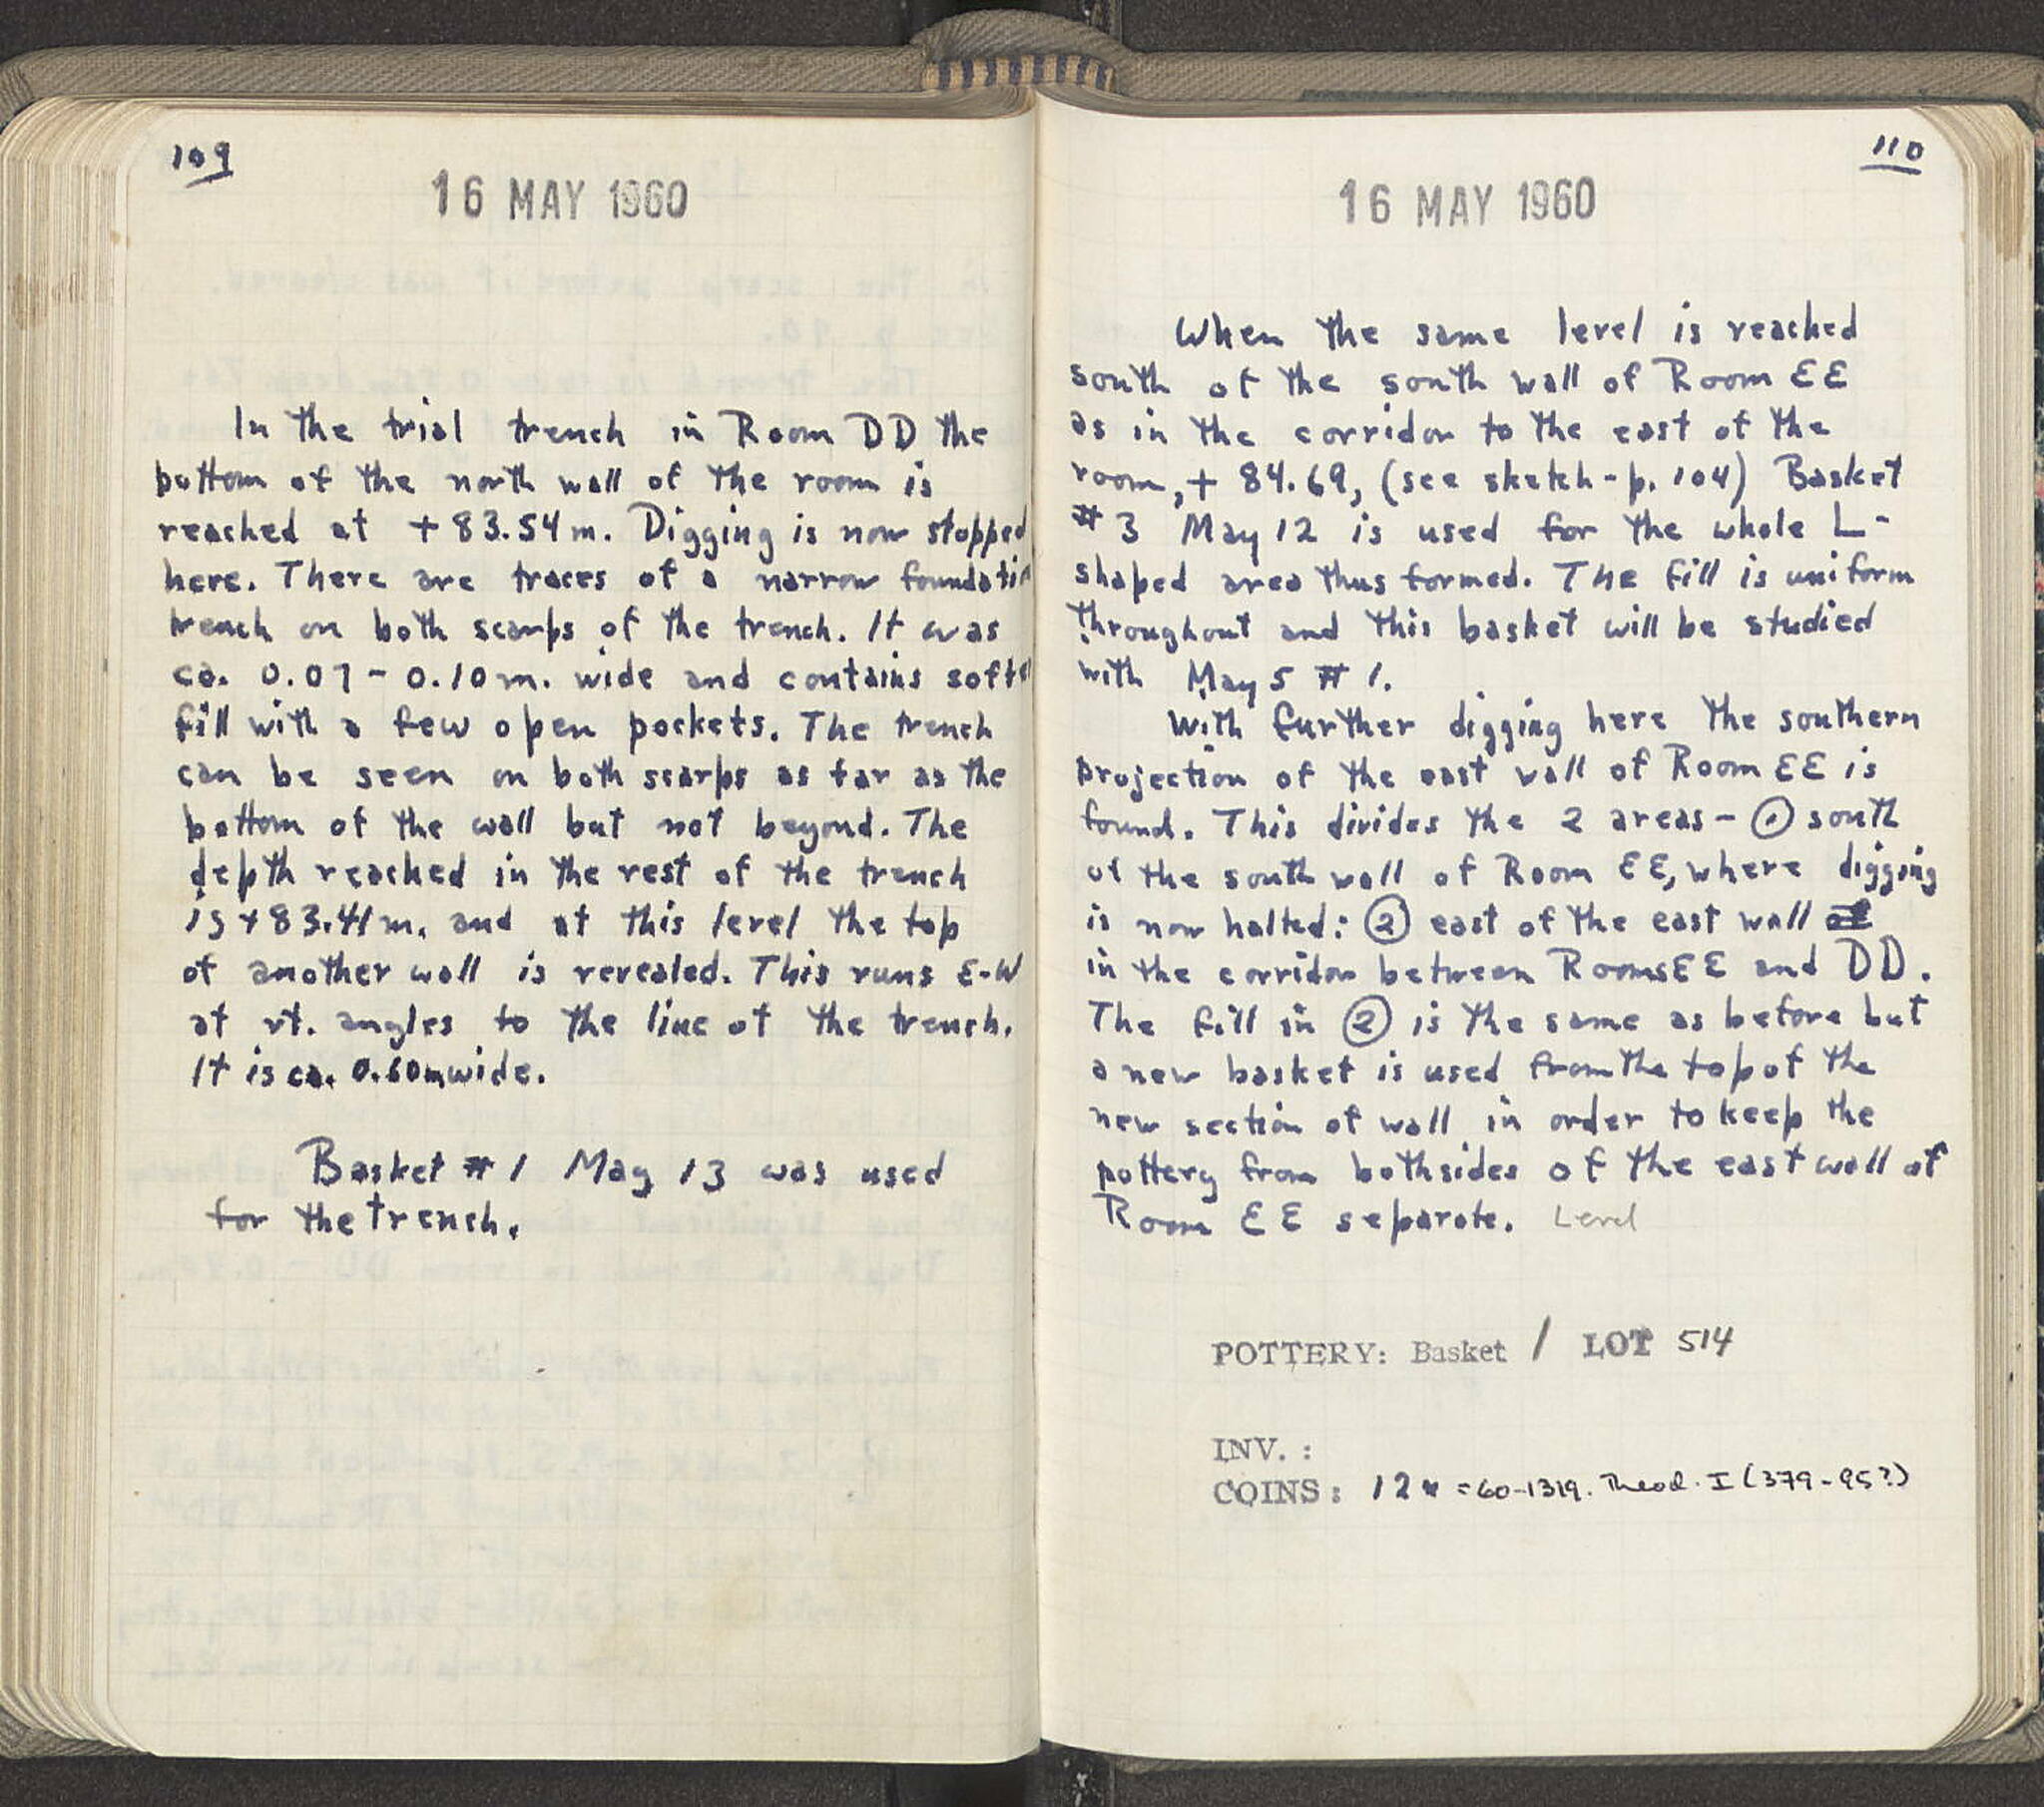 109
16 MAY 1960
In the trial trench in Room DD the
bottom of the north wall of the room is
reached at +83.54m. Digging is now stopped
here. There are traces of a narrow foundatio
trench on both scarps of the trench. It was
ca. 0.07-0.10m. wide and contains softe
fill with a few open pockets. The trench
can be seen on both scarps as far as the
bottom of the wall but not beyond. The
depth reached in the rest of the trench
is +83.41m. and at this level the top
of another wall is revealed. This runs E-W
at rt. angles to the line of the trench.
It is ca. 0.60m wide.
Basket #1 May 13 was used
for the trench.
110
16 MAY 1960
When the same level is reached
south of the south wall of Room EE
as in the corridor to the east of the
room, +84.69, (see sketch-p. 104) Basket
#3 May 12 is used for the whole L-
shaped area thus formed. The fill is uniform
throughout and this basket will be studied
with May 5 #1.
With further digging here the southern
projection of the east wall of Room EE is
found. This divides the 2 areas - ① south
of the south wall of Room EE, where digging
is now halted: ② east of the east wall
in the corridor between Rooms EE and DD.
The fill in ② is the same as before but
a new basket is used from the top of the
new section of wall in order to keep the
pottery from both sides of the east wall of
Room EE separate. Level
POTTERY: Basket 1 LOT 514
INV. :
COINS: 12 = 60-1319. Theod. I (379-95?)